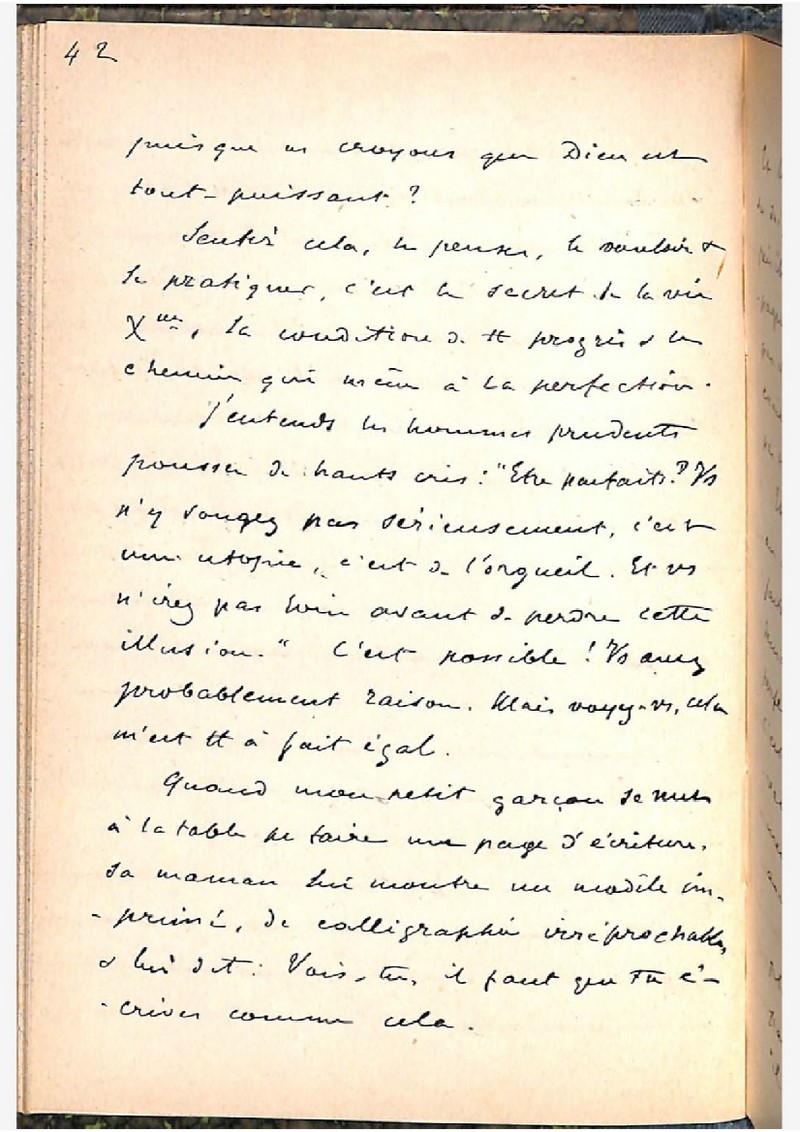 42
puisque ns croyons que Dieu est
tout-puissant ?
Sentir cela, le penser, le vouloir &
le pratiquer, c'est le secret de la vie
Xne, la condition de tt progrès & le
chemin qui mène à la perfection.
J'entends les hommes prudents
pousser de hauts cris : "Etre parfaits ? Vs
n'y songez pas sérieusement, c'est
une utopie, c'est de l'orgueil. Et vs
n'irez pas loin avant de perdre cette
illusion." C'est possible ! Vs avez
probablement raison. Mais voyez-vs, cela
m'est tt à fait égal.
Quand mon petit garçon se met
à la table pr faire une page d'écriture,
sa maman lui montre un modèle im-
-primé, de calligraphie irréprochable,
& lui dit : Vois-tu, il faut que tu é-
-crives comme cela.